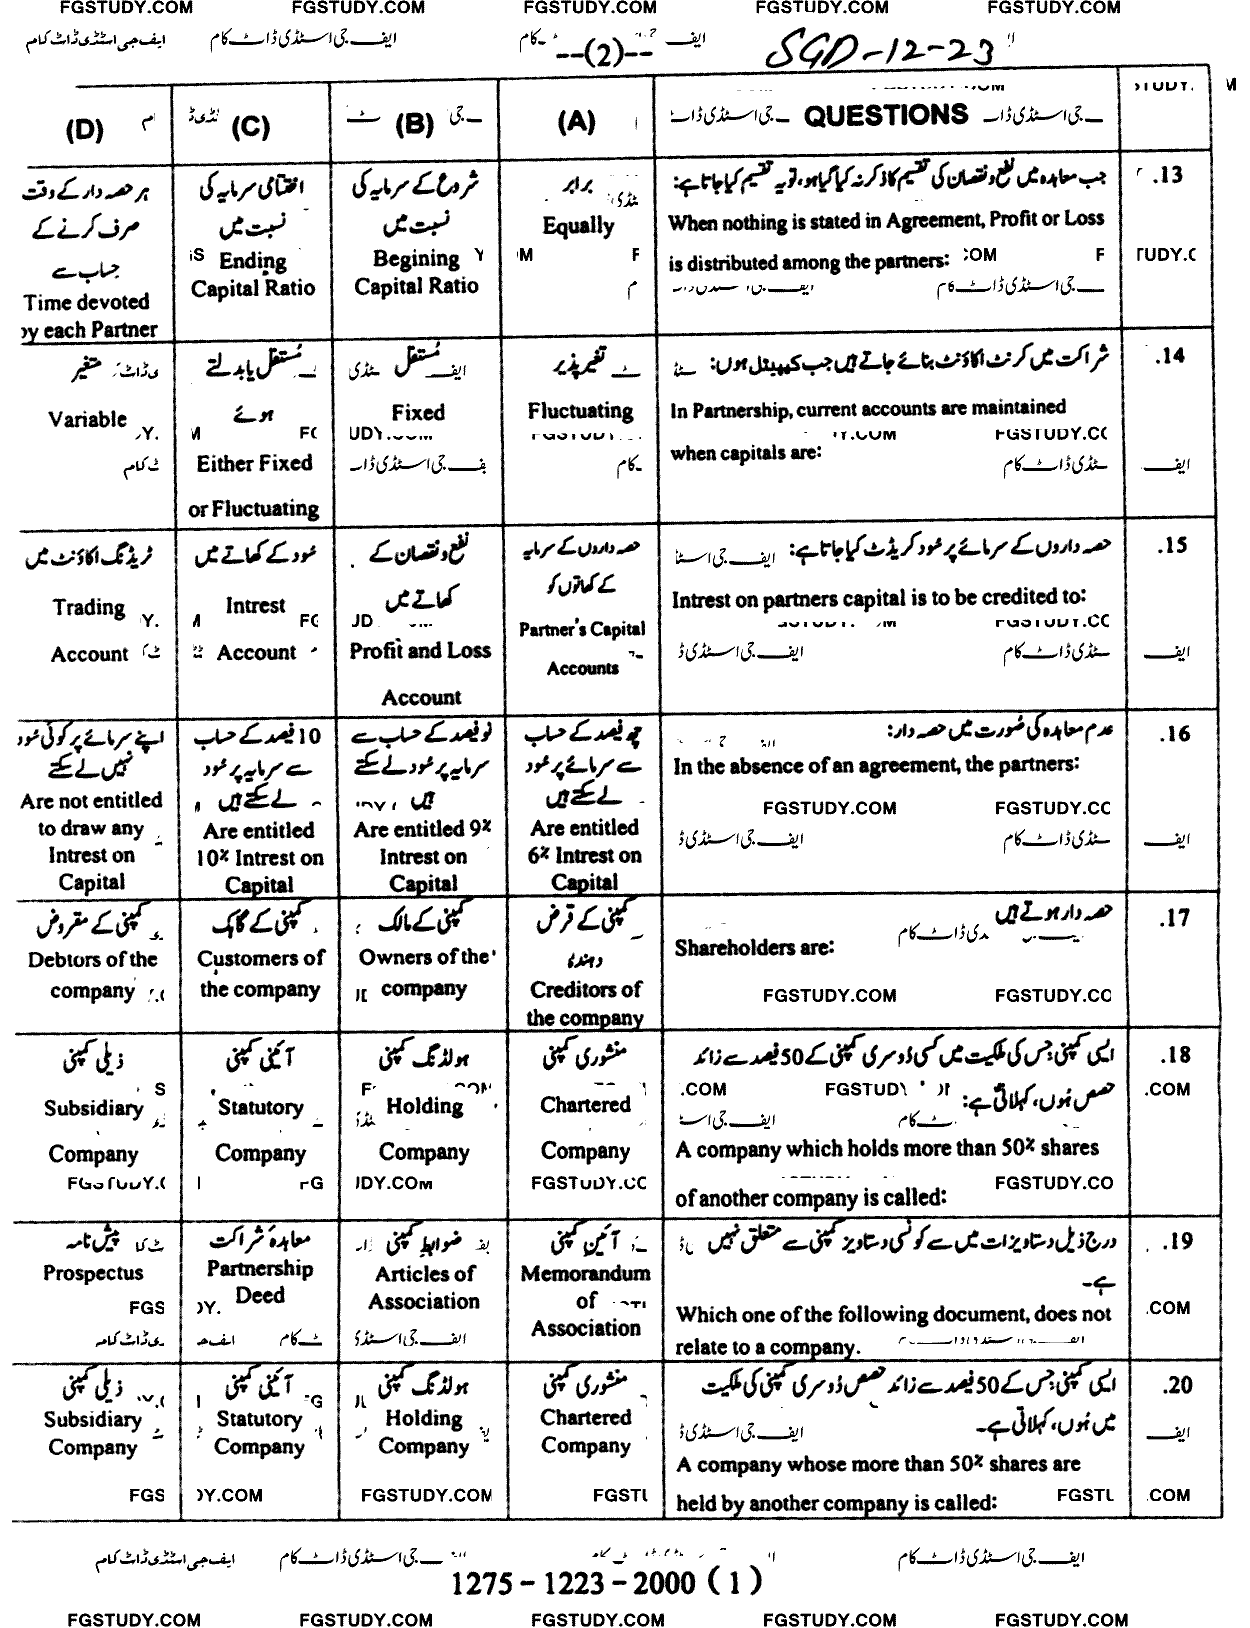 FGSTUDY.COM FGSTUDY.COM FGSTUDY.COM FGSTUDY.COM FGSTUDY.COM
ایف جی اسٹڈی ڈاٹ کام
--(2)-- SGD-12-23
QUESTIONS (A) (B) (C) (D)
.13 جب معاہدہ میں نفع و نقصان کی تقسیم کا ذکر نہ کیا گیا ہو، تو یہ تقسیم کیا جاتا ہے:
When nothing is stated in Agreement, Profit or Loss
is distributed among the partners:
برابر
Equally
شروع کے سرمایہ کی
نسبت میں
Begining
Capital Ratio
اختتامی سرمایہ کی
نسبت میں
Ending
Capital Ratio
ہر حصہ دار کے وقت
صرف کرنے کے
حساب سے
Time devoted
by each Partner
.14 شراکت میں کرنٹ اکاؤنٹ بنائے جاتے ہیں جب کیپیٹل ہوں:
In Partnership, current accounts are maintained
when capitals are:
تغیر پذیر
Fluctuating
مُستقل
Fixed
مُستقل یا بدلتے
ہوئے
Either Fixed
or Fluctuating
متغیر
Variable
.15 حصہ داروں کے سرمائے پر سُود کریڈٹ کیا جاتا ہے:
Intrest on partners capital is to be credited to:
حصہ داروں کے سرمایہ
کے کھاتوں کو
Partner's Capital
Accounts
نفع و نقصان کے
کھاتے میں
Profit and Loss
Account
سُود کے کھاتے میں
Intrest
Account
ٹریڈنگ اکاؤنٹ میں
Trading
Account
.16 عدم معاہدہ کی صُورت میں حصہ دار:
In the absence of an agreement, the partners:
چھ فیصد کے حساب
سے سرمائے پر سُود
لے سکتے ہیں
Are entitled
6% Intrest on
Capital
نو فیصد کے حساب سے
سرمایہ پر سُود لے سکتے
ہیں
Are entitled 9%
Intrest on
Capital
10 فیصد کے حساب
سے سرمایہ پر سُود
لے سکتے ہیں
Are entitled
10% Intrest on
Capital
اپنے سرمائے پر کوئی سُود
نہیں لے سکتے
Are not entitled
to draw any
Intrest on
Capital
.17 حصہ دار ہوتے ہیں
Shareholders are:
کمپنی کے قرض
دہندہ
Creditors of
the company
کمپنی کے مالک
Owners of the
company
کمپنی کے گاہک
Customers of
the company
کمپنی کے مقروض
Debtors of the
company
.18 ایسی کمپنی جس کی ملکیت میں کسی دُوسری کمپنی کے 50 فیصد سے زائد
حصص ہُوں، کہلاتی ہے:
A company which holds more than 50% shares
of another company is called:
منشوری کمپنی
Chartered
Company
ہولڈنگ کمپنی
Holding
Company
آئینی کمپنی
Statutory
Company
ذیلی کمپنی
Subsidiary
Company
.19 درج ذیل دستاویزات میں سے کونسی دستاویز کمپنی سے متعلق نہیں
ہے۔
Which one of the following document, does not
relate to a company.
آئینِ کمپنی
Memorandum
of
Association
ضوابطِ کمپنی
Articles of
Association
معاہدہ شراکت
Partnership
Deed
پیش نامہ
Prospectus
.20 ایسی کمپنی جس کے 50 فیصد سے زائد حصص دُوسری کمپنی کی ملکیت
میں ہُوں، کہلاتی ہے۔
A company whose more than 50% shares are
held by another company is called:
منشوری کمپنی
Chartered
Company
ہولڈنگ کمپنی
Holding
Company
آئینی کمپنی
Statutory
Company
ذیلی کمپنی
Subsidiary
Company
ایف جی اسٹڈی ڈاٹ کام
1275 – 1223 – 2000 ( 1 )
FGSTUDY.COM FGSTUDY.COM FGSTUDY.COM FGSTUDY.COM FGSTUDY.COM